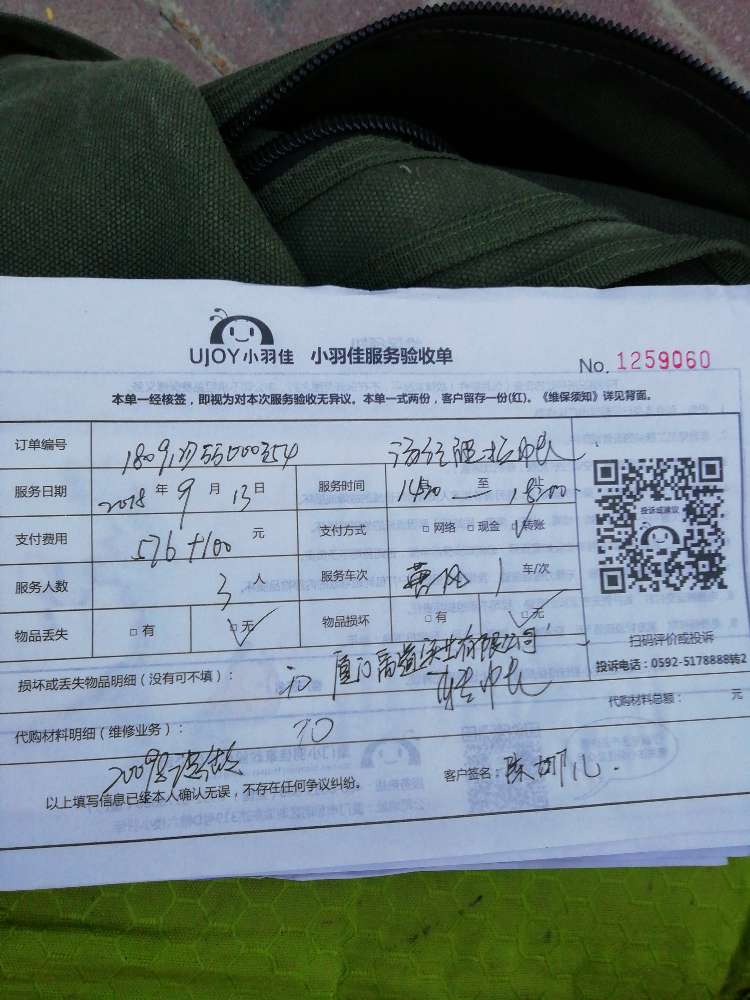 UJOY小羽佳 小羽佳服务验收单
No. 1259060
本单一经核签，即视为对本次服务验收无异议。本单一式两份，客户留存一份(红)。《维保须知》详见背面。
订单编号
服务日期 2018 年 9 月 13 日 服务时间 1430 至 1800 止
支付费用 576+100 元 支付方式 □网络 □现金 □转账
服务人数 3 人 服务车次 1 车/次
物品丢失 □有 □无 物品损坏 □有 □无
投诉或建议
扫码评价或投诉
投诉电话：0592-5178888转2
损坏或丢失物品明细（没有可不填）： 有限公司
代购材料明细（维修业务）： 代购材料总额： 元
以上填写信息已经本人确认无误，不存在任何争议纠纷。 客户签名：陈娜儿